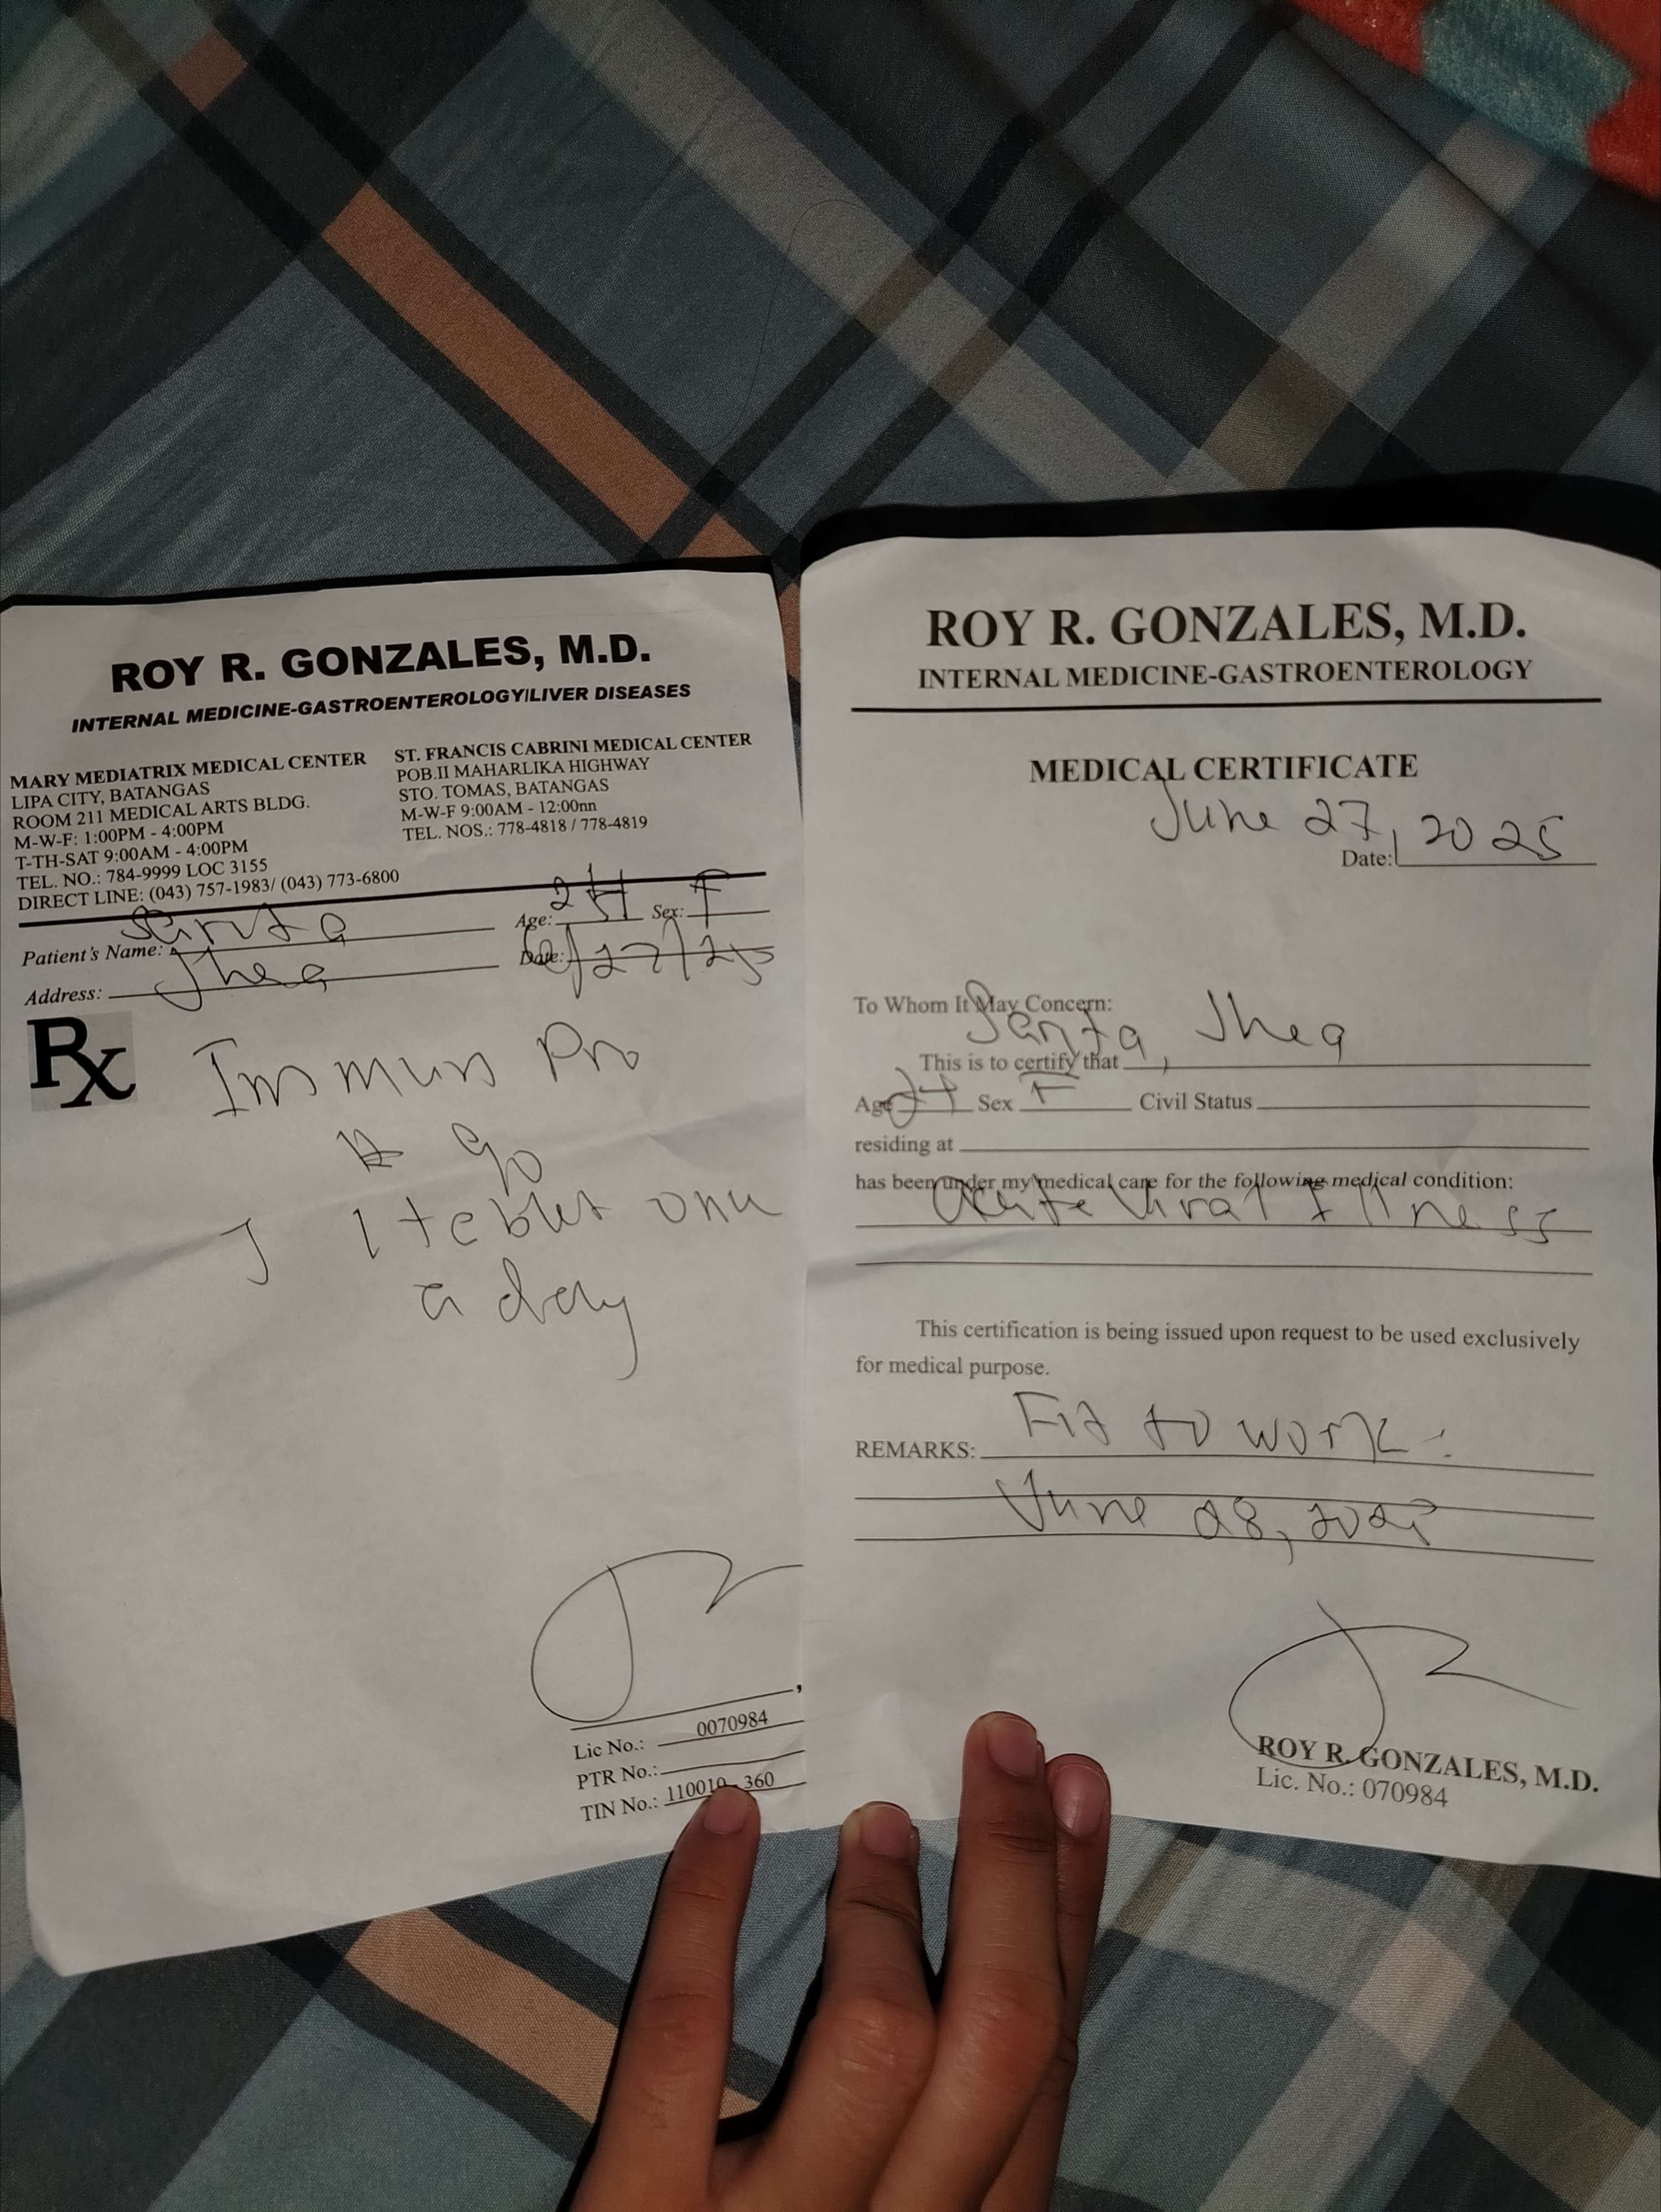 ROY R. GONZALES, M.D.
INTERNAL MEDICINE-GASTROENTEROLOGY/LIVER DISEASES
MARY MEDIATRIX MEDICAL CENTER
LIPA CITY, BATANGAS
ROOM 211 MEDICAL ARTS BLDG.
M-W-F: 1:00PM - 4:00PM
T-TH-SAT 9:00AM - 4:00PM
TEL. NO.: 784-9999 LOC 3155
DIRECT LINE: (043) 757-1983/ (043) 773-6800
ST. FRANCIS CABRINI MEDICAL CENTER
POB.II MAHARLIKA HIGHWAY
STO. TOMAS, BATANGAS
M-W-F 9:00AM - 12:00nn
TEL. NOS.: 778-4818 / 778-4819
Patient's Name: Santa Age: 24 Sex: F
Address: Jhea Date: 6/27/25
Rx
Immuno Pro
1 tablet once
a day
Lic No.: 0070984
PTR No.:
TIN No.: 110010 - 360
ROY R. GONZALES, M.D.
INTERNAL MEDICINE-GASTROENTEROLOGY
MEDICAL CERTIFICATE
June 27, 2025
Date:
To Whom It May Concern:
This is to certify that Santa, Jhea
Age 24 Sex F Civil Status
residing at
has been under my medical care for the following medical condition:
Acute Viral Illness
This certification is being issued upon request to be used exclusively
for medical purpose.
REMARKS: Fit to work :
June 28, 2025
ROY R. GONZALES, M.D.
Lic. No.: 070984